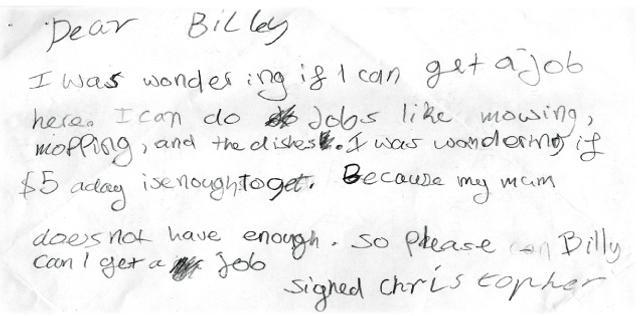 Dear Billey
I was wondering if I can get a job
here. I can do Jobs like mowing,
mopping, and the dishes. I was wondering if
$5 aday isenough to get. Because my mum
does not have enough. So please Billy
can I get a job
signed christopher